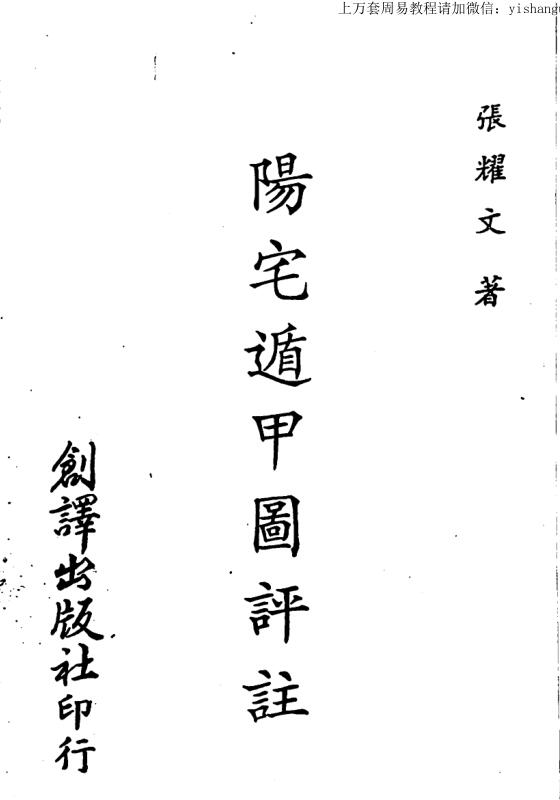 上万套周易教程请加微信：yishang
張耀文著
陽宅遁甲圖評註
創譯出版社印行